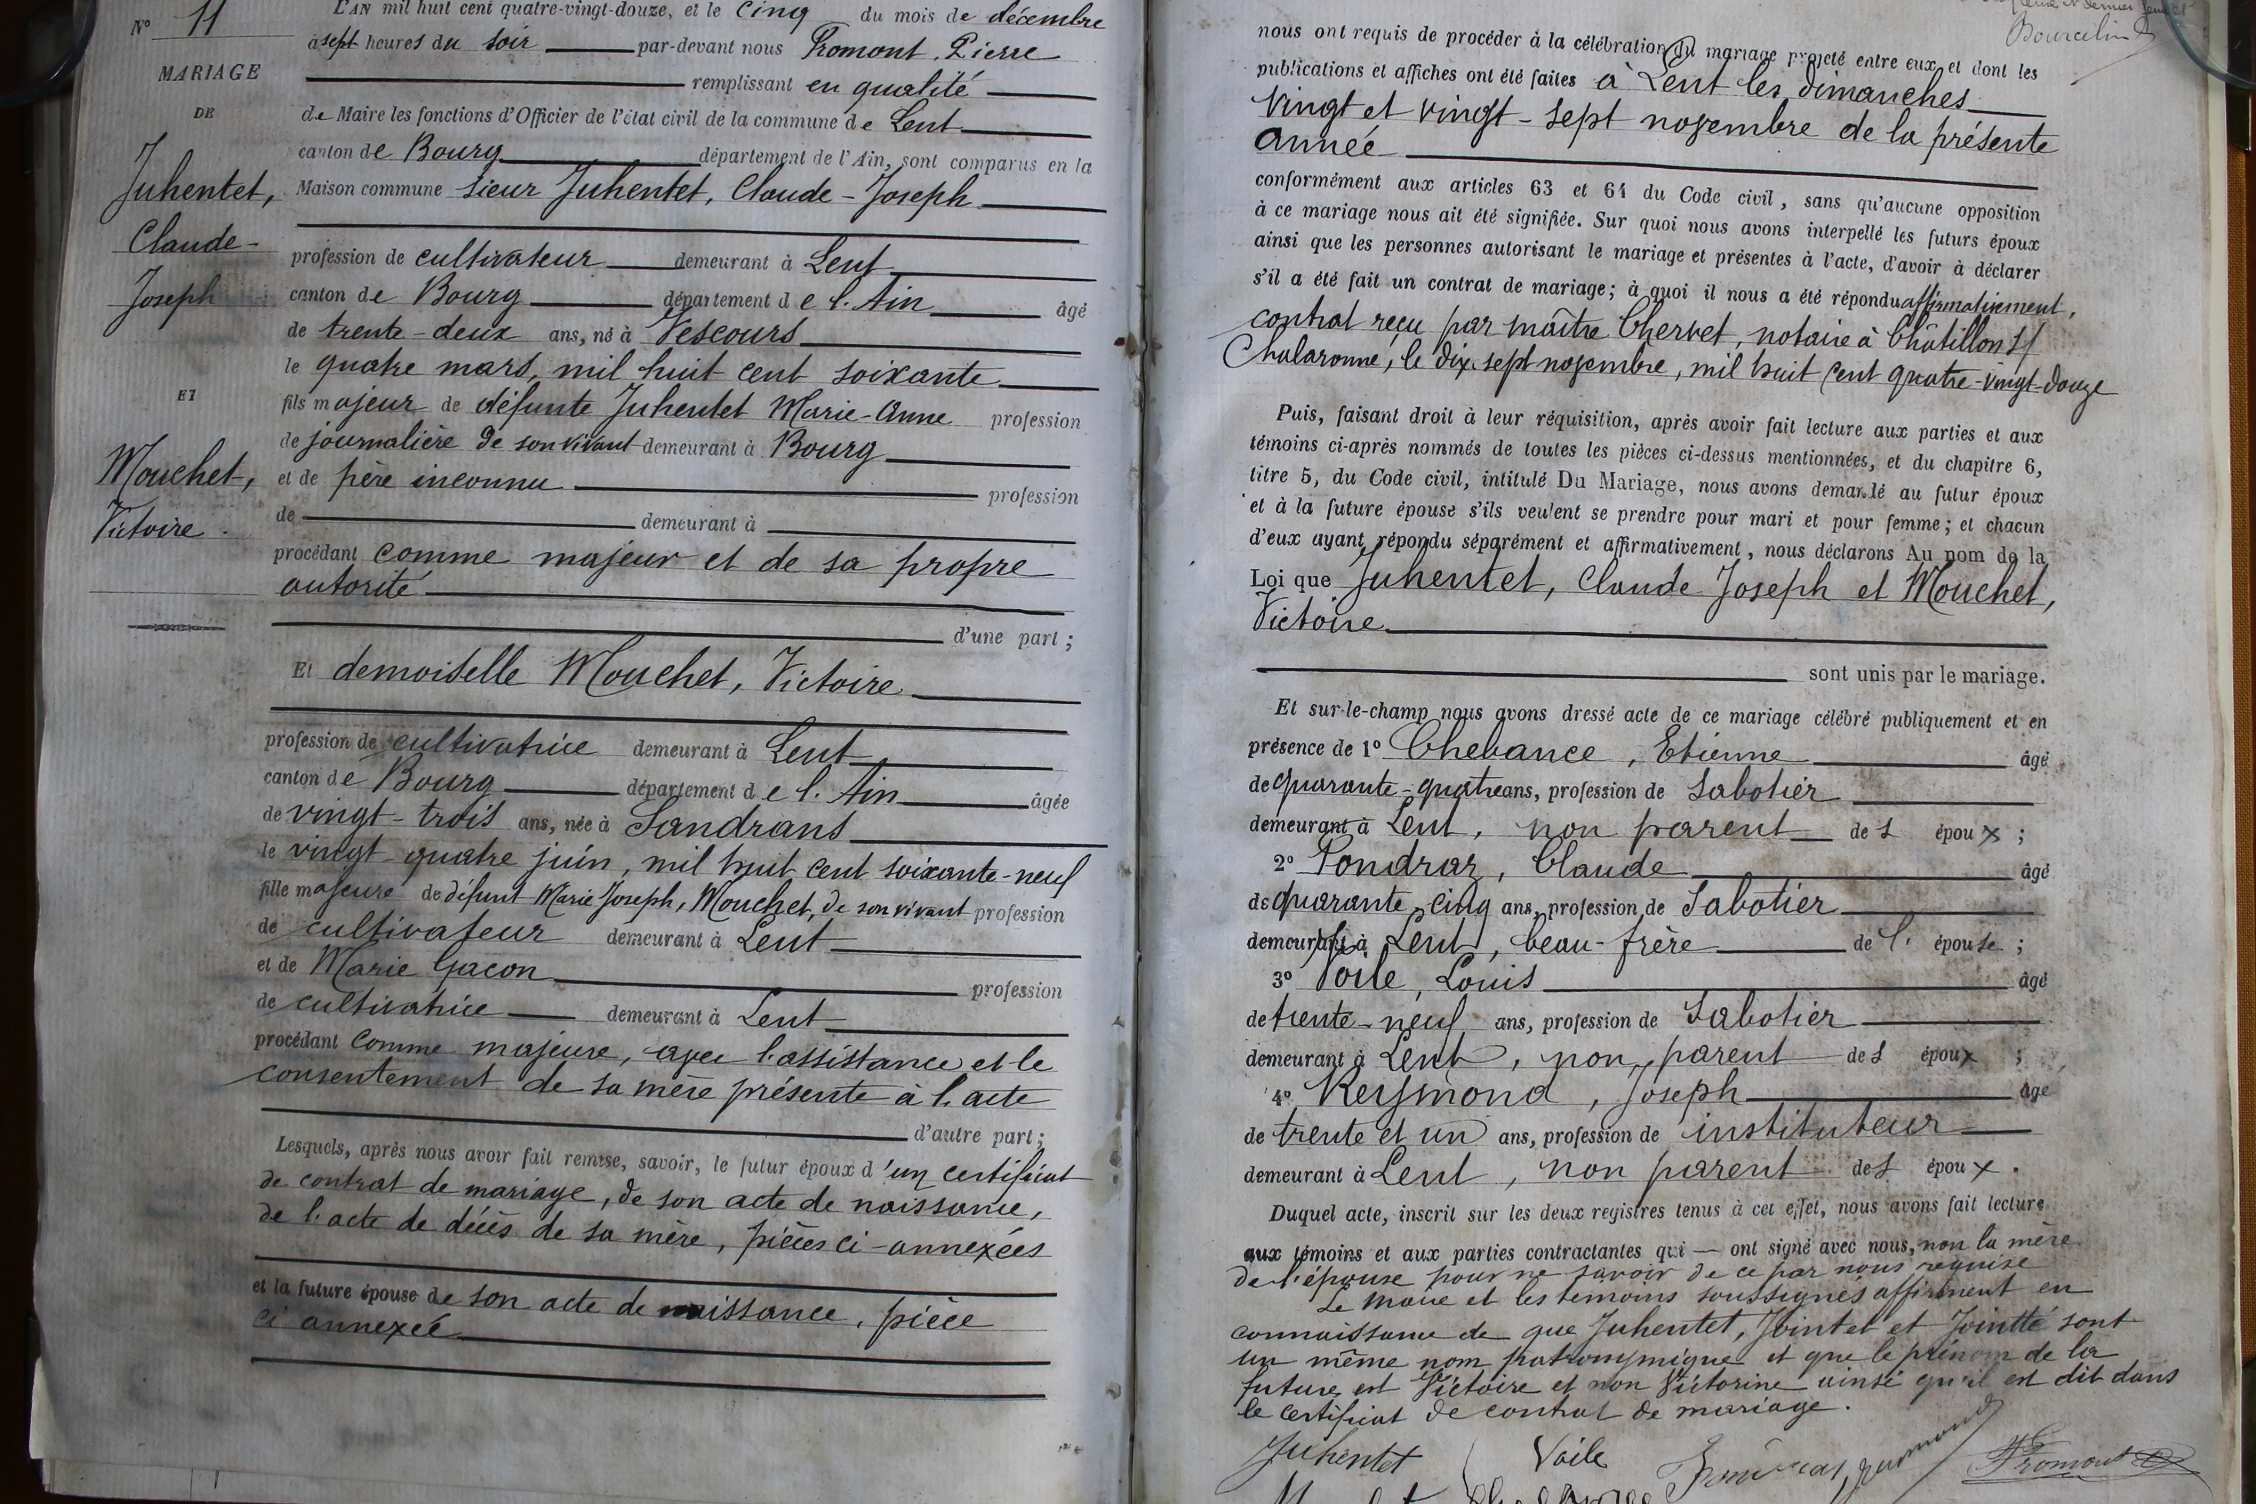 L'AN mil huit cent quatre-vingt-douze, et le cinq du mois de décembre
N° 11
à sept heures du soir par-devant nous Promont, Pierre
MARIAGE
remplissant en qualité
DE
de Maire les fonctions d'Officier de l'état civil de la commune de Lent
canton de Bourg département de l'Ain, sont comparus en la
Juhentet,
Maison commune sieur Juhentet, Claude-Joseph
Claude-
profession de cultivateur demeurant à Lent
Joseph
canton de Bourg département de l'Ain âgé
de trente-deux ans, né à Vescours
le quatre mars, mil huit cent soixante
ET
fils majeur de défunte Juhentet Marie-Anne profession
de journalière de son vivant demeurant à Bourg
Mouchet,
et de père inconnu profession
Victoire.
de demeurant à
procédant comme majeur et de sa propre
autorité
d'une part ;
Et demoiselle Mouchet, Victoire
profession de cultivatrice demeurant à Lent
canton de Bourg département de l'Ain âgée
de vingt-trois ans, née à Sandrans
le vingt-quatre juin, mil huit cent soixante-neuf
fille majeure de défunt Marie Joseph, Mouchet, de son vivant profession
de cultivateur demeurant à Lent
et de Marie Gacon profession
de cultivatrice demeurant à Lent
procédant comme majeure, avec l'assistance et le
consentement de sa mère présente à l'acte
d'autre part ;
Lesquels, après nous avoir fait remise, savoir, le futur époux d'un certificat
de contrat de mariage, de son acte de naissance,
de l'acte de décès de sa mère, pièces ci-annexées
et la future épouse de son acte de naissance, pièce
ci annexée
Bourcelin
nous ont requis de procéder à la célébration du mariage projeté entre eux et dont les
publications et affiches ont été faites à Lent les dimanches
vingt et vingt-sept novembre de la présente
année
conformément aux articles 63 et 64 du Code civil, sans qu'aucune opposition
à ce mariage nous ait été signifiée. Sur quoi nous avons interpellé les futurs époux
ainsi que les personnes autorisant le mariage et présentes à l'acte, d'avoir à déclarer
s'il a été fait un contrat de mariage ; à quoi il nous a été répondu affirmativement,
contrat reçu par maître Chervet, notaire à Châtillon s/
Chalaronne, le dix-sept novembre, mil huit cent quatre-vingt-douze
Puis, faisant droit à leur réquisition, après avoir fait lecture aux parties et aux
témoins ci-après nommés de toutes les pièces ci-dessus mentionnées, et du chapitre 6,
titre 5, du Code civil, intitulé Du Mariage, nous avons demandé au futur époux
et à la future épouse s'ils veulent se prendre pour mari et pour femme ; et chacun
d'eux ayant répondu séparément et affirmativement, nous déclarons Au nom de la
Loi que Juhentet, Claude Joseph et Mouchet,
Victoire
sont unis par le mariage.
Et sur-le-champ nous avons dressé acte de ce mariage célébré publiquement et en
présence de 1° Chevance, Etienne âgé
de quarante-quatre ans, profession de sabotier
demeurant à Lent, non parent des époux ;
2° Pondraz, Claude âgé
de quarante-cinq ans, profession de sabotier
demeurant à Lent, beau-frère de l'épouse ;
3° Voile, Louis âgé
de trente-neuf ans, profession de sabotier
demeurant à Lent, non parent des époux ;
4° Reymond, Joseph âgé
de trente et un ans, profession de instituteur
demeurant à Lent, non parent des époux.
Duquel acte, inscrit sur les deux registres tenus à cet effet, nous avons fait lecture
aux témoins et aux parties contractantes qui ont signé avec nous, non la mère
de l'épouse pour ne savoir de ce par nous requise
Le maire et les témoins soussignés affirment en
connaissance de que Juhentet, Jointet et Jointté sont
un même nom patronymique et que le prénom de la
future est Victoire et non Victorine ainsi qu'il est dit dans
le certificat de contrat de mariage.
Juhentet Voile Promont